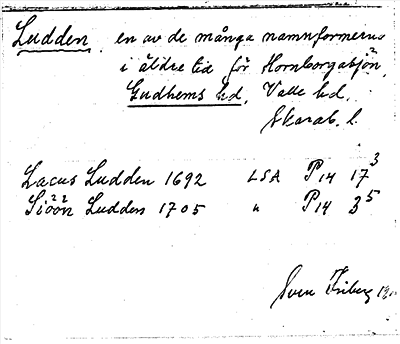 Ludden, en av de många namnformerna
i äldre tid för Hornborgasjön,
Gudhems hd, Valle hd,
Skarab. l.
Lacus Ludden 1692 LSA P14 17³
Siöön Ludden 1705 " P14 3⁵
Sven Friberg